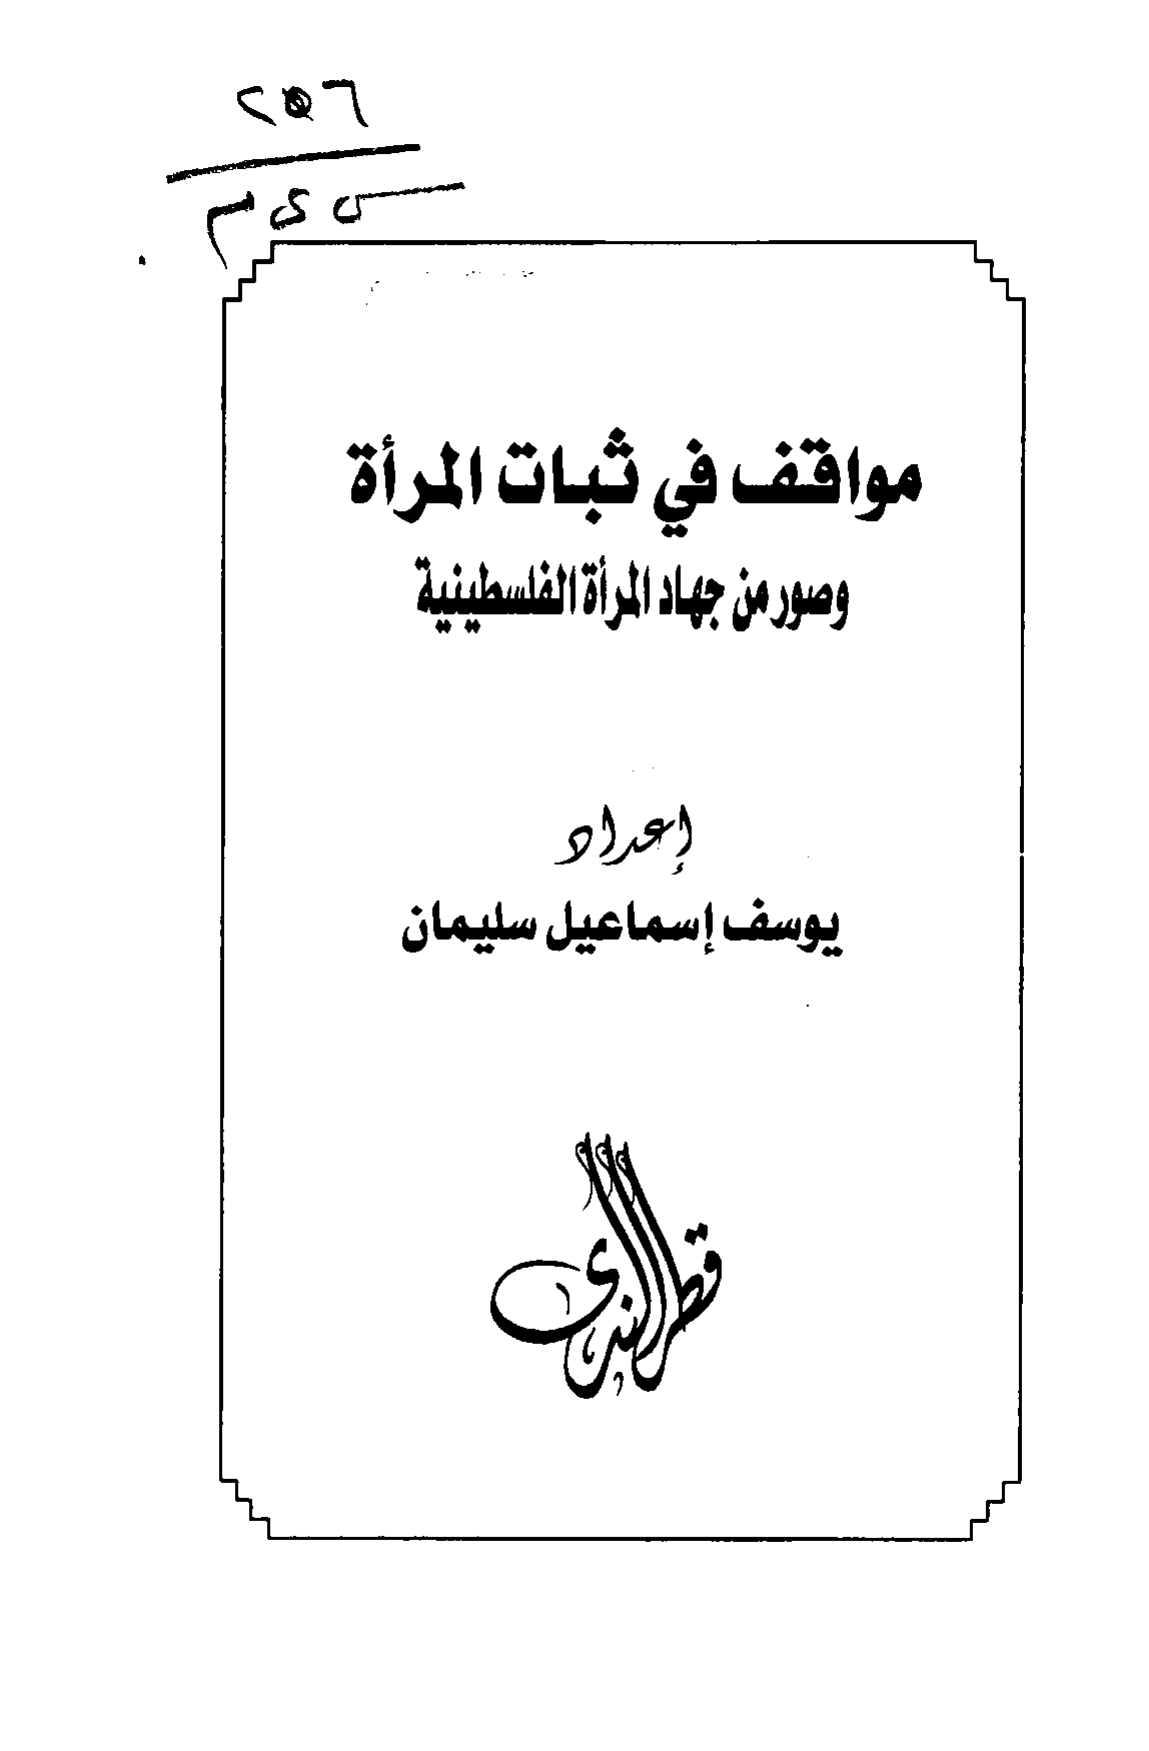 ٢٥٦
س ي م
مواقف في ثبات المرأة
وصور من جهاد المرأة الفلسطينية
إعداد
يوسف إسماعيل سليمان
قطر الندى